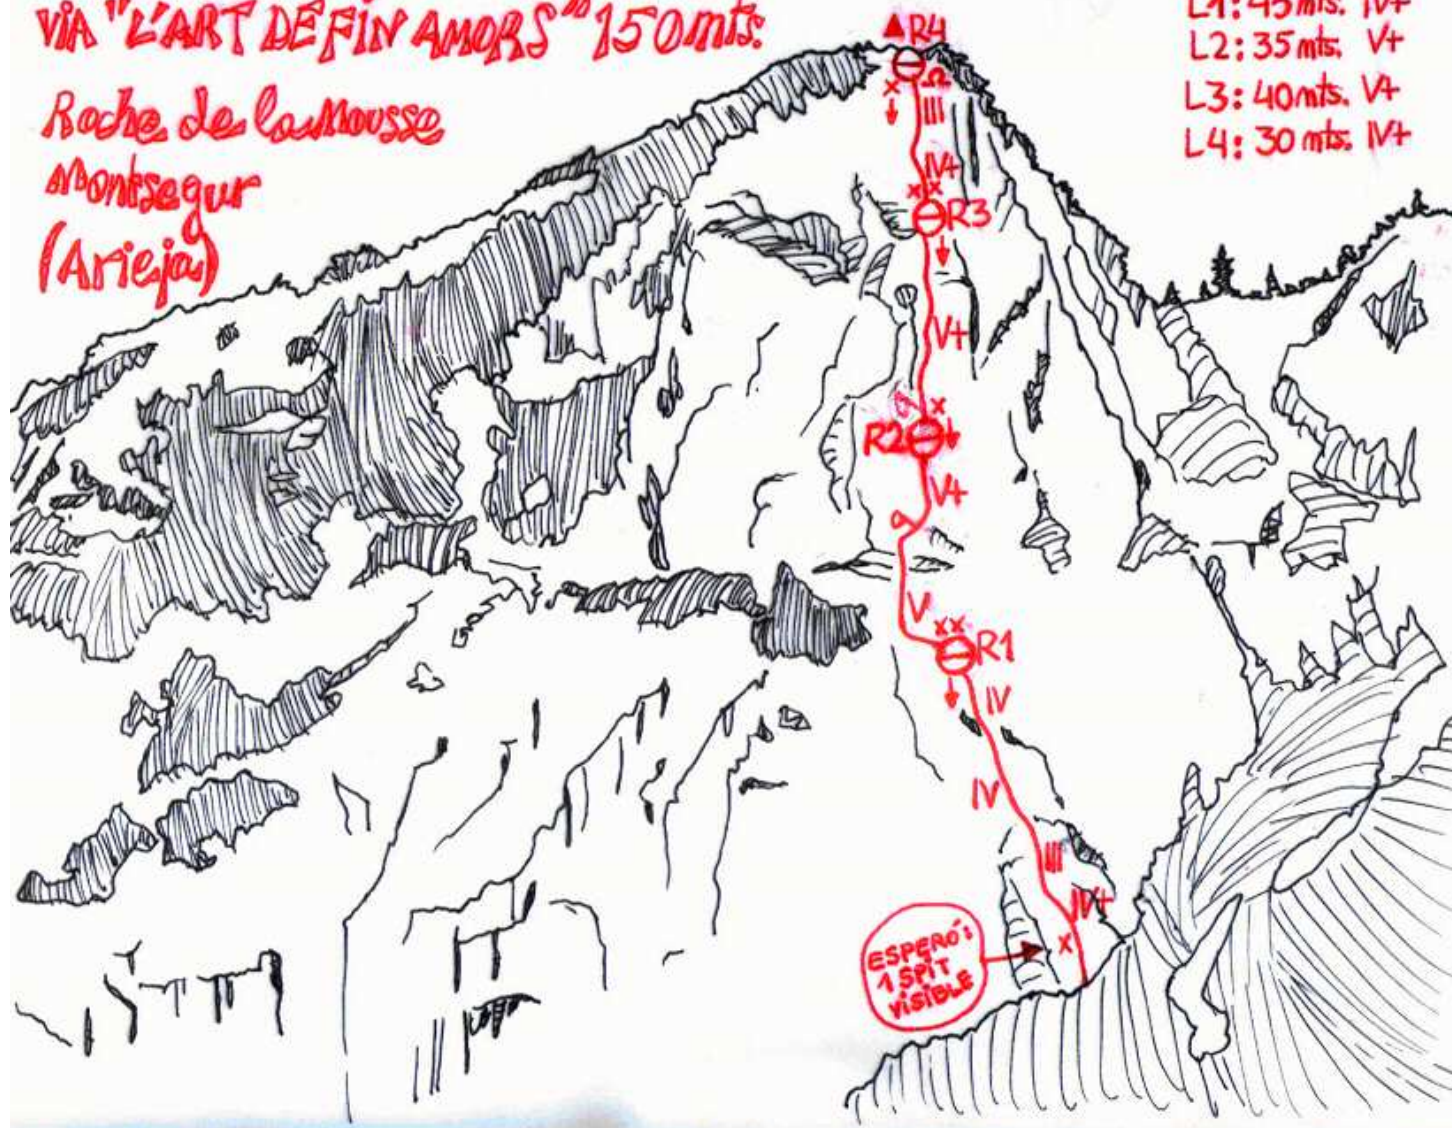 VIA "L'ART DE FIN AMORS" 150mts.
Roche de la Mousse
Montsegur
(Arieja)
L1: 45mts. IV+
L2: 35mts. V+
L3: 40mts. V+
L4: 30mts. IV+
R4
III
IV+
R3
V+
R2
V+
V
R1
IV
IV
III
IV+
ESPERÓ:
1 SPIT
VISIBLE